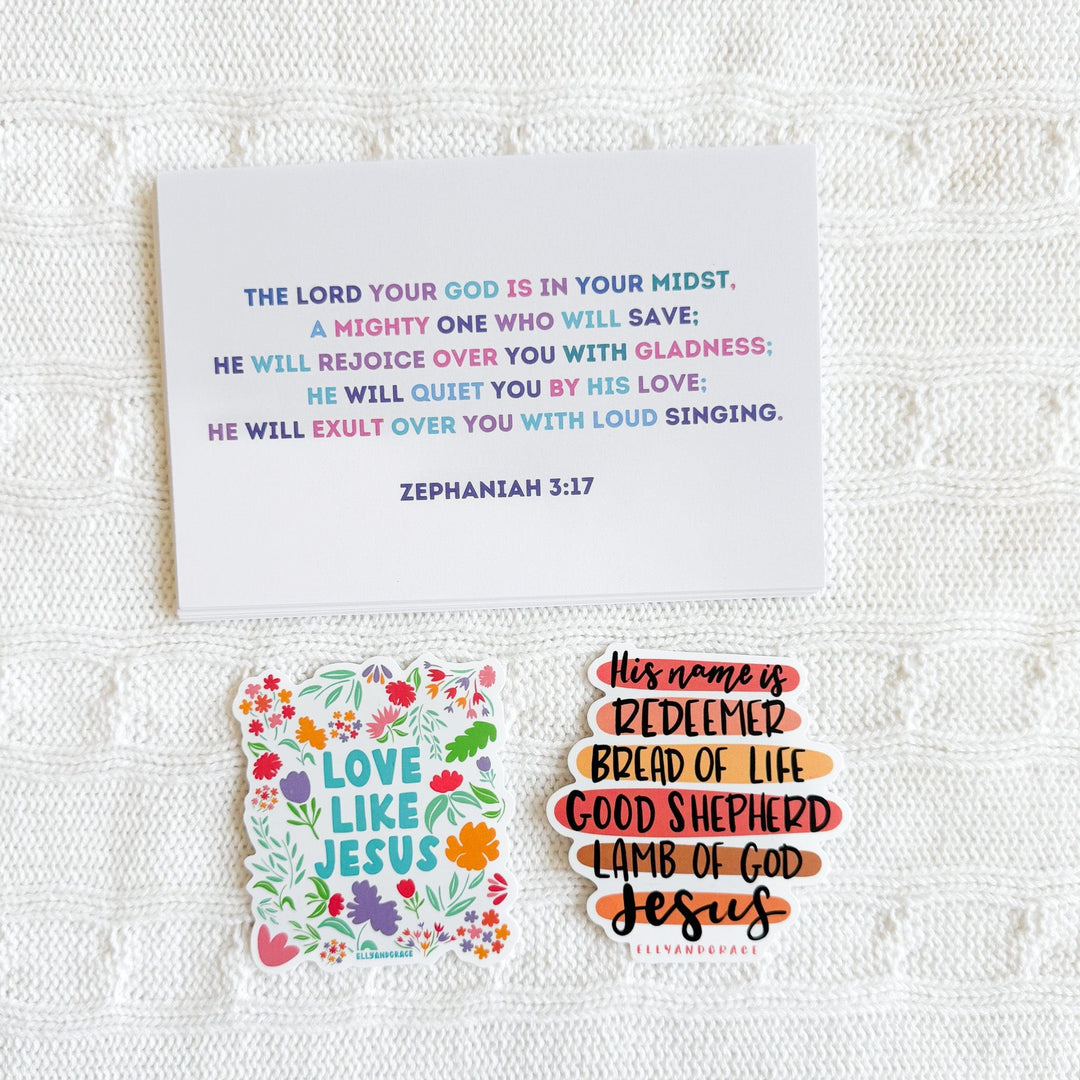 THE LORD YOUR GOD IS IN YOUR MIDST,
A MIGHTY ONE WHO WILL SAVE;
HE WILL REJOICE OVER YOU WITH GLADNESS;
HE WILL QUIET YOU BY HIS LOVE;
HE WILL EXULT OVER YOU WITH LOUD SINGING.
ZEPHANIAH 3:17
LOVE
LIKE
JESUS
ELLYANDGRACE
His name is
REDEEMER
BREAD OF LIFE
GOOD SHEPHERD
LAMB OF GOD
Jesus
ELLYANDGRACE